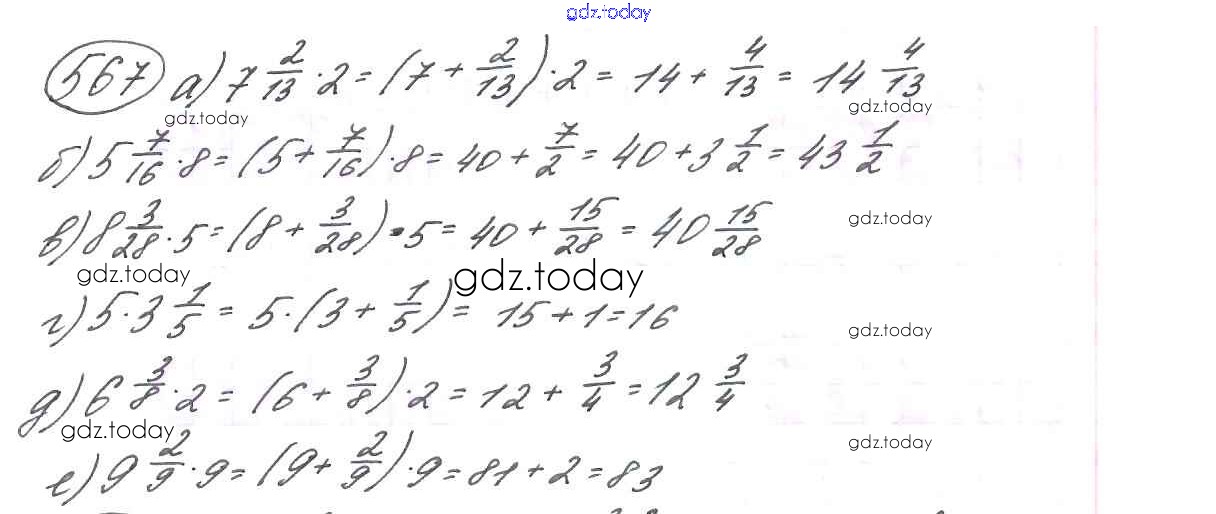 gdz.today
567 а) 7 2/13 · 2 = (7 + 2/13) · 2 = 14 + 4/13 = 14 4/13
gdz.today gdz.today
б) 5 7/16 · 8 = (5 + 7/16) · 8 = 40 + 7/2 = 40 + 3 1/2 = 43 1/2
в) 8 3/28 · 5 = (8 + 3/28) · 5 = 40 + 15/28 = 40 15/28
gdz.today
gdz.today gdz.today
г) 5 · 3 1/5 = 5 · (3 + 1/5) = 15 + 1 = 16
gdz.today
д) 6 3/8 · 2 = (6 + 3/8) · 2 = 12 + 3/4 = 12 3/4
gdz.today gdz.today
е) 9 2/9 · 9 = (9 + 2/9) · 9 = 81 + 2 = 83